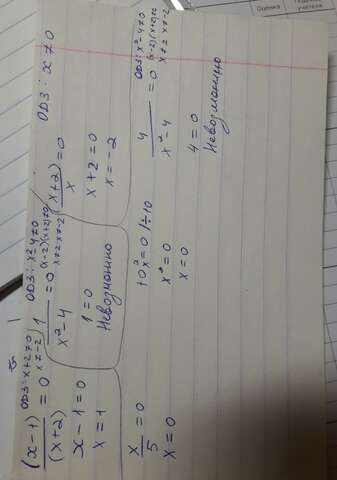 (x-1)/(x+2) = 0 ОДЗ: x+2≠0
x≠-2
x-1=0
x=1
1/(x²-4) = 0 ОДЗ: x²-4≠0
(x-2)(x+2)≠0
x≠2 x≠-2
1=0
Невозможно
(x+2)/x = 0 ОДЗ: x≠0
x+2=0
x=-2
x/5 = 0
x=0
10x²=0 |÷10
x²=0
x=0
4/(x²-4) = 0 ОДЗ: x²-4≠0
(x-2)(x+2)≠0
x≠2 x≠-2
4=0
Невозможно
Оценка